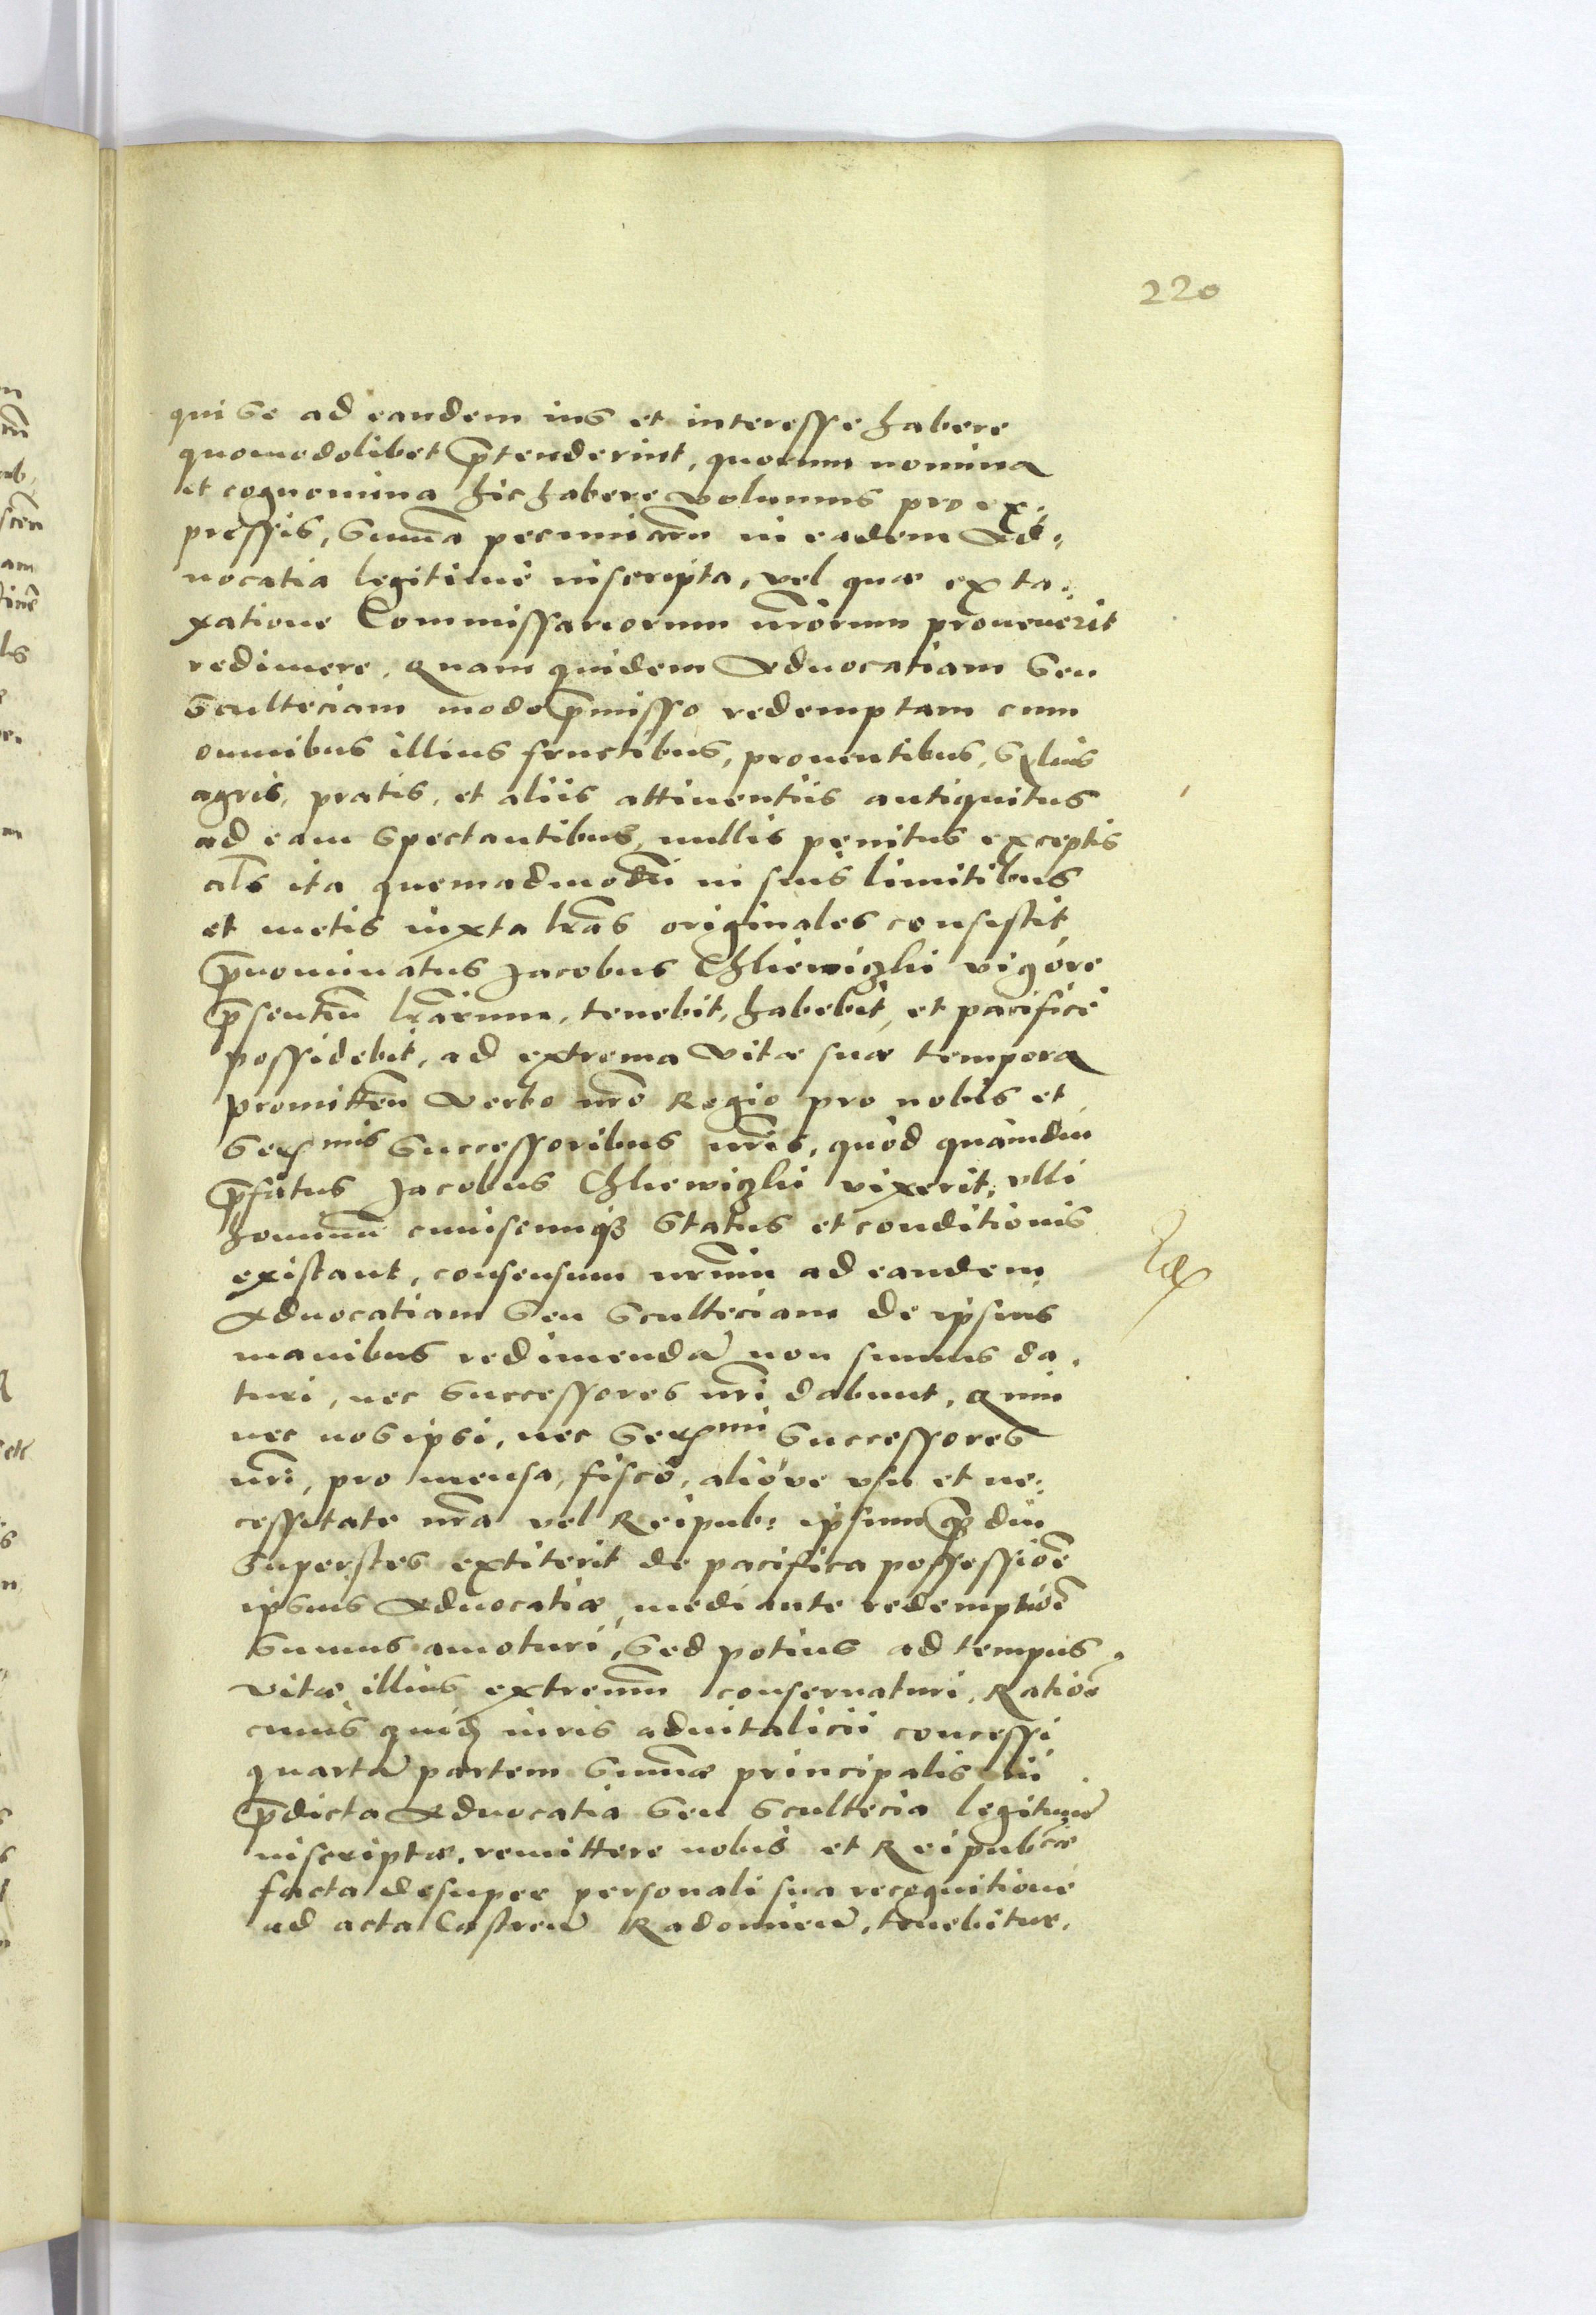 220
qui se ad eandem ius et interesse habere
quomodolibet p̄tenderint, quorum nomina
et cognomina hic habere volumus pro ex:
pressis, sum̄a pecuniarū in eadem Ad:
uocatia legitimè inscripta, vel quæ ex ta:
xatione Commissariorum nr̄orum prouenerit
redimere. Quam quidem Aduocatiam seu
scultetiam modo p̄misso redemptam cum
omnibus illius fructibus, prouentibus,
agris, pratis, et aliis attinentiis antiquitus
ad eam spectantibus, nullis penitus exceptis
ita quemadmodū in suis limitibus
et metis iuxta lr̄as originales consistit,
p̄nominatus Jacobus Chliewiczki vigore
p̄sentiū lr̄arum, tenebit, habebit, et pacificè
possidebit, ad extrema vitæ suæ tempora
promitteñ verbo nr̄o Regio pro nobis et
Ser^mis Successoribus nr̄is, quòd quàmdiu
p̄fatus Jacobus Chliewiczki vixerit, vlli
hominū cuiuscunq₃ status et conditionis
existant, consensum nr̄um ad eandem
Aduocatiam seu Scultetiam de ipsius
manibus redimendā non sumus da:
turi, nec Successores nr̄i dabunt, Quin
nec nos ipsi, nec Ser^mi Successores
nr̄i, pro mensa, fisco, alióue vsu et ne:
cessitate nr̄a vel Reipub: ipsum q̄diu
superstes extiterit de pacifica possessiōe
ipsius Aduocatiæ, mediante redemptiōe
sumus amoturi, sed potius ad tempus
vitæ illius extremum conseruaturi, Ratiōe
cuius quid̄ iuris aduitalicii concessi
quartā partem sum̄æ principalis in
p̄dicta Aduocatia seu Scultetia legitimè
inscriptæ, remittere nobis et Reipub^cæ
facta desuper personali sua recognitione
ad acta Castreñ Radomieñ, tenebitur.